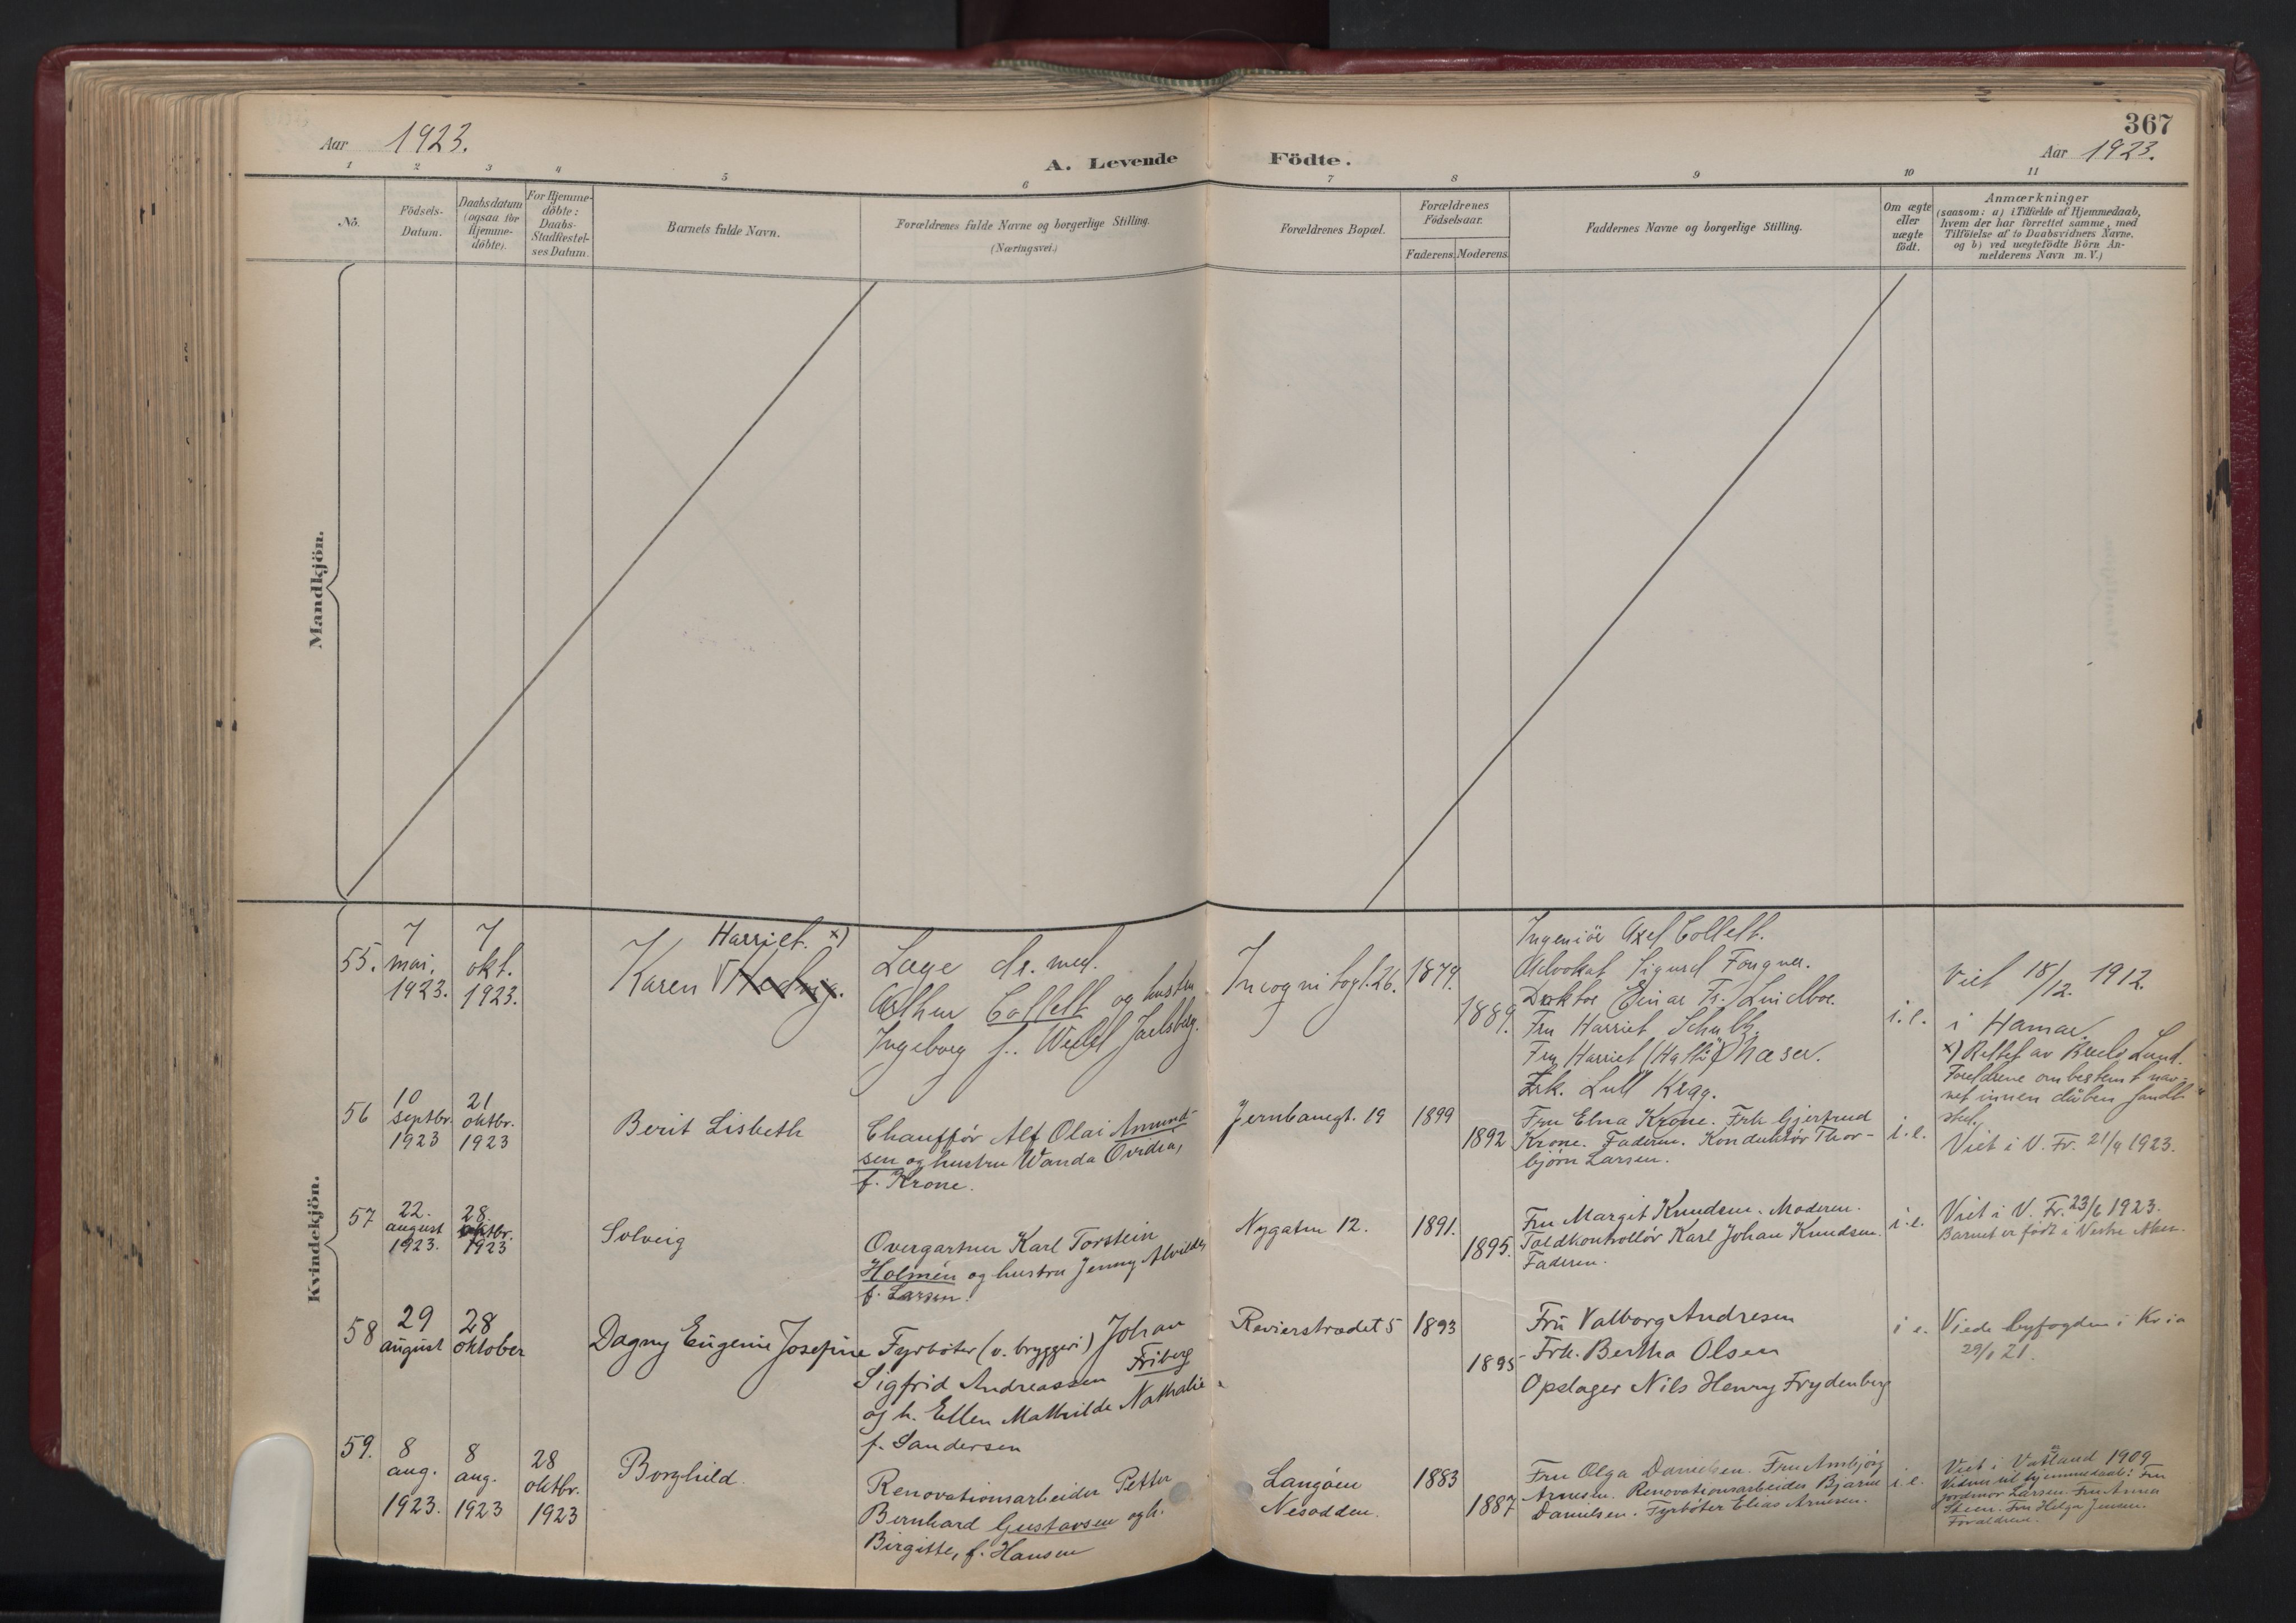 367
Aar 1923.
A. Levende Födte.
Aar 1923.
1 2 3 4 5 6 7 8 9 10 11
No.
Födsels-
Datum.
Daabsdatum
(ogsaa for
Hjemme-
döbte).
For Hjemme-
döbte:
Daabs-
Stadfæstel-
ses Datum.
Barnets fulde Navn.
Forældrenes fulde Navne og borgerlige Stilling.
(Næringsvei.)
Forældrenes Bopæl.
Forældrenes
Födselsaar.
Faderens. Moderens.
Faddernes Navne og borgerlige Stilling.
Om ægte
eller
uægte
födt.
Anmærkninger
(saasom: a) i Tilfælde af Hjemmedaab,
hvem der har forrettet samme, med
Tilföielse af to Daabsvidners Navne,
og b) ved uægtefödte Börn An-
melderens Navn m. V.)
Mandkjön.
Kvindekjön.
55.
7
mai.
1923.
7
okt.
1923.
Harriet. x)
Karen Hedvig.
Læge dr. med.
Arthur Collett og hustru
Ingeborg f. Wedel Jarlsberg.
Incognitogt. 26.
1879.
1889.
Ingeniör Axel Collett.
Advokat Sigurd Fougner.
Doktor Einar Fr. Lindboe.
Fru Harriet Schultz.
Fru Harriet
Frk. Lull Krag.
i. e.
Viet 18/12. 1912.
i Hamar.
x) Rettet av Lund.
Foreldrene ombestemt nav-
net innen dåben fandt
sted.
56
10
septbr.
1923
21
oktbr.
1923
Berit Lisbeth
Chauffør Alf Olai Amund-
sen og hustru Wanda Ovidia,
f. Krone.
Jernbanegt. 19
1899
1892
Fru Elna Krone. Frk Gjertrud
Krone. Faderen. Konduktør Thor-
bjørn Larsen.
i. e.
Viet i V. Fr. 21/4 1923.
57
22.
august
1923.
28.
oktbr.
1923
Solveig
Overgartner Karl Torstein
Holmén og hustru Jenny Alvilde
f. Larsen.
Nygaten 12.
1891.
1895.
Fru Margit Knudsen. Moderen.
Toldkontrollör Karl Johan Knudsen.
Faderen.
i. e.
Viet i V. Fr. 23/6 1923.
Barnet er født i Vestre Aker.
58
29
august
28
oktober
Dagny Eugenie Josefine
Fyrbøter (v. bryggeri) Johan
Sigfrid Andreassen Friberg
og h. Ellen Mathilde Nathalie
f. Sandersen
Revierstrædet 5
1893
1895
Frü Valborg Andresen
Frk. Bertha Olsen
Opslager Nils Henry Frydenberg
i e.
Viede byfogden i Kr.ia
29/1 21.
59.
8
aug.
1923.
8
aug.
1923
28
oktbr.
1923
Borghild.
Renovationsarbeider Petter
Bernhard Gustavsen og h.
Birgitte, f. Hansen
Langøen
Nesodden.
1883
1887
Fru Olga Danielsen. Fru Ambjörg
Arnesen. Renovationsarbeider Bjarne
Danielsen. Fyrböter Elias Arnesen.
i. e.
Viet i Vatland 1909
Vidner til hjemmedaab: Fru
jordmor Larsen. Fru Anna
Steen. Fru Helga Jensen.
Forældrene.